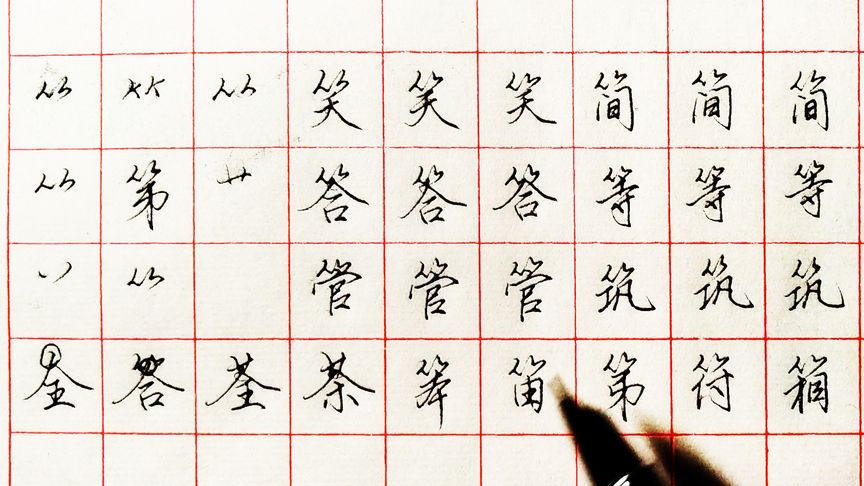 ⺮ ⺮ ⺮ 笑 笑 笑 简 简 简
⺮ 第 艹 答 答 答 等 等 等
⺮ 管 管 管 筑 筑 筑
答 荃 茶 笨 笛 第 符 箱